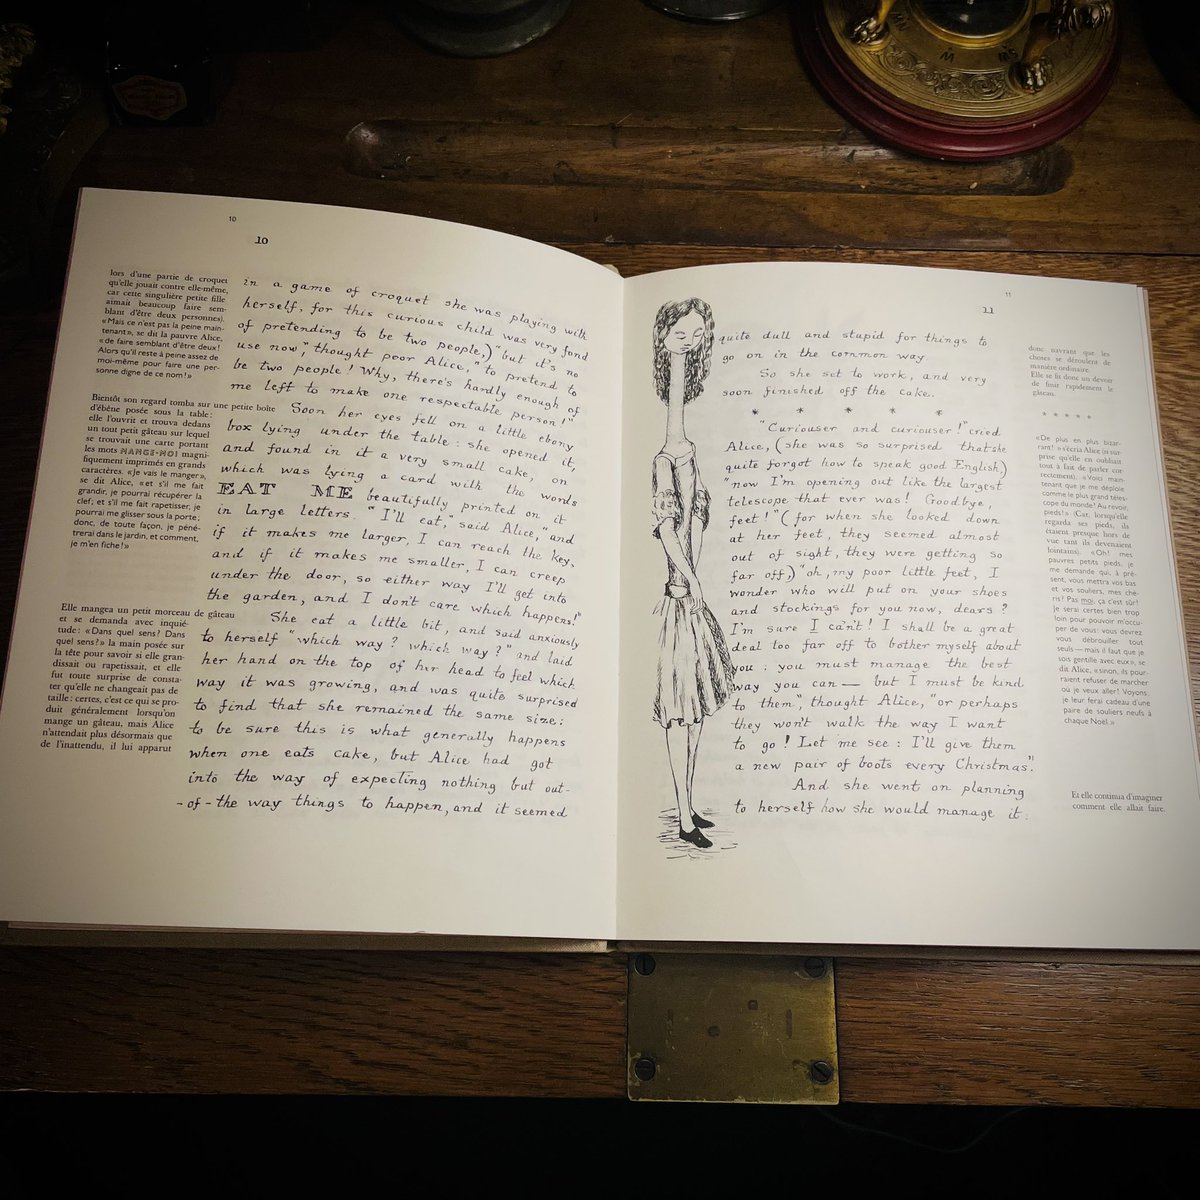 10
10
lors d'une partie de croquet
qu'elle jouait contre elle-même,
car cette singulière petite fille
aimait beaucoup faire sem-
blant d'être deux personnes).
«Mais ce n'est pas la peine main-
tenant», se dit la pauvre Alice,
«de faire semblant d'être deux!
Alors qu'il reste à peine assez de
moi-même pour faire une per-
sonne digne de ce nom!»
Bientôt son regard tomba sur une petite boîte
d'ébène posée sous la table:
elle l'ouvrit et trouva dedans
un tout petit gâteau sur lequel
se trouvait une carte portant
les mots MANGE-MOI magni-
fiquement imprimés en grands
caractères. «Je vais le manger»,
se dit Alice, «et s'il me fait
grandir, je pourrai récupérer la
clef, et s'il me fait rapetisser, je
pourrai me glisser sous la porte;
donc, de toute façon, je péné-
trerai dans le jardin, et comment,
je m'en fiche!»
Elle mangea un petit morceau de gâteau
et se demanda avec inquié-
tude: «Dans quel sens? Dans
quel sens?» la main posée sur
la tête pour savoir si elle gran-
dissait ou rapetissait, et elle
fut toute surprise de consta-
ter qu'elle ne changeait pas de
taille: certes, c'est ce qui se pro-
duit généralement lorsqu'on
mange un gâteau, mais Alice
n'attendait plus désormais que
de l'inattendu, il lui apparut
in a game of croquet she was playing with
herself, for this curious child was very fond
of pretending to be two people,) "but it's no
use now," thought poor Alice, "to pretend to
be two people! Why, there's hardly enough of
me left to make one respectable person!"
Soon her eyes fell on a little ebony
box lying under the table: she opened it,
and found in it a very small cake, on
which was lying a card with the words
EAT ME beautifully printed on it
in large letters "I'll eat," said Alice, "and
if it makes me larger, I can reach the key,
and if it makes me smaller, I can creep
under the door, so either way I'll get into
the garden, and I don't care which happens!"
She eat a little bit, and said anxiously
to herself "which way? which way?" and laid
her hand on the top of her head to feel which
way it was growing, and was quite surprised
to find that she remained the same size:
to be sure this is what generally happens
when one eats cake, but Alice had got
into the way of expecting nothing but out-
-of-the way things to happen, and it seemed
11
11
quite dull and stupid for things to
go on in the common way
So she set to work, and very
soon finished off the cake.
* * * * *
"Curiouser and curiouser!" cried
Alice, (she was so surprised that she
quite forgot how to speak good English,)
"now I'm opening out like the largest
telescope that ever was! Goodbye,
feet!" (for when she looked down
at her feet, they seemed almost
out of sight, they were getting so
far off,) "oh, my poor little feet, I
wonder who will put on your shoes
and stockings for you now, dears?
I'm sure I can't! I shall be a great
deal too far off to bother myself about
you: you must manage the best
way you can — but I must be kind
to them", thought Alice, "or perhaps
they won't walk the way I want
to go! Let me see: I'll give them
a new pair of boots every Christmas".
And she went on planning
to herself how she would manage it:
donc navrant que les
choses se déroulent de
manière ordinaire.
Elle se fit donc un devoir
de finir rapidement le
gâteau.
* * * * *
«De plus en plus bizar-
rant!» s'écria Alice (si sur-
prise qu'elle en oubliait
tout à fait de parler cor-
rectement). «Voici main-
tenant que je me déploie
comme le plus grand téles-
cope du monde! Au revoir,
pieds!» (Car, lorsqu'elle
regarda ses pieds, ils
étaient presque hors de
vue tant ils devenaient
lointains). «Oh! mes
pauvres petits pieds, je
me demande qui, à pré-
sent, vous mettra vos bas
et vos souliers, mes ché-
ris! Pas moi, ça c'est sûr!
Je serai certes bien trop
loin pour pouvoir m'occu-
per de vous: vous devrez
vous débrouiller tout
seuls — mais il faut que je
sois gentille avec eux», se
dit Alice, «sinon, ils pour-
raient refuser de marcher
où je veux aller! Voyons,
je leur ferai cadeau d'une
paire de souliers neufs à
chaque Noël.»
Et elle continua d'imaginer
comment elle allait faire.